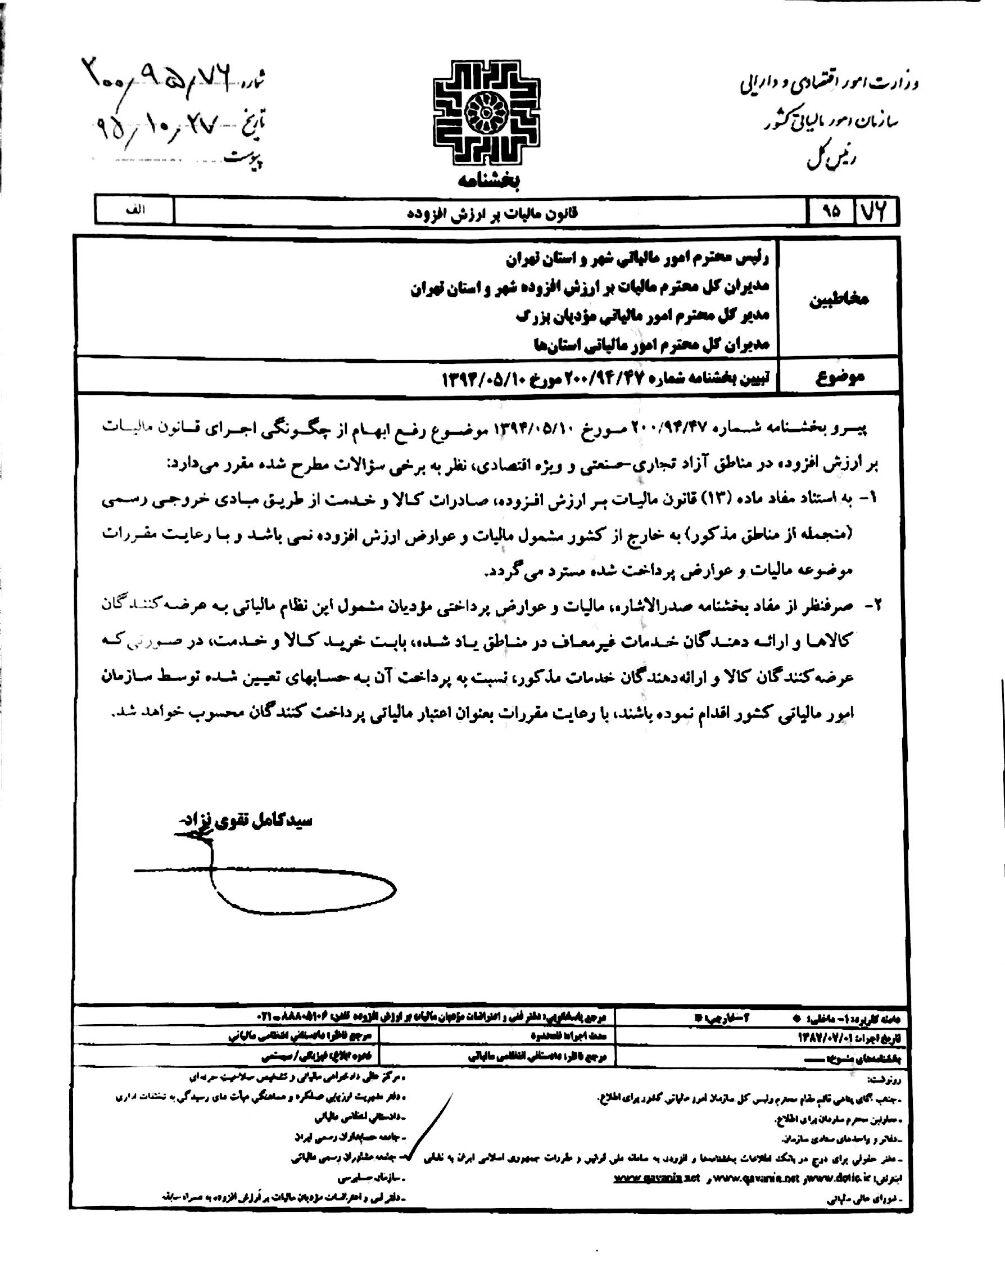 وزارت امور اقتصادی و دارایی
سازمان امور مالیاتی کشور
رئیس کل
شماره ۲۰۰/۹۵/۷۶
تاریخ ۹۵/۱۰/۲۷
پیوست
بخشنامه
۷۶ ۹۵ قانون مالیات بر ارزش افزوده الف
مخاطبین
رئیس محترم امور مالیاتی شهر و استان تهران
مدیران کل محترم مالیات بر ارزش افزوده شهر و استان تهران
مدیر کل محترم امور مالیاتی مؤدیان بزرگ
مدیران کل محترم امور مالیاتی استان‌ها
موضوع تبیین بخشنامه شماره ۲۰۰/۹۴/۴۷ مورخ ۱۳۹۴/۰۵/۱۰
پیرو بخشنامه شماره ۲۰۰/۹۴/۴۷ مورخ ۱۳۹۴/۰۵/۱۰ موضوع رفع ابهام از چگونگی اجرای قانون مالیات
بر ارزش افزوده در مناطق آزاد تجاری-صنعتی و ویژه اقتصادی، نظر به برخی سؤالات مطرح شده مقرر می‌دارد:
۱- به استناد مفاد ماده (۱۳) قانون مالیات بر ارزش افزوده، صادرات کالا و خدمت از طریق مبادی خروجی رسمی
(منجمله از مناطق مذکور) به خارج از کشور مشمول مالیات و عوارض ارزش افزوده نمی باشد و با رعایت مقررات
موضوعه مالیات و عوارض پرداخت شده مسترد می گردد.
۲- صرفنظر از مفاد بخشنامه صدرالاشاره، مالیات و عوارض پرداختی مؤدیان مشمول این نظام مالیاتی به عرضه کنندگان
کالاها و ارائه دهندگان خدمات غیرمعاف در مناطق یاد شده، بابت خرید کالا و خدمت، در صورتی که
عرضه کنندگان کالا و ارائه‌دهندگان خدمات مذکور، نسبت به پرداخت آن به حسابهای تعیین شده توسط سازمان
امور مالیاتی کشور اقدام نموده باشند، با رعایت مقررات بعنوان اعتبار مالیاتی پرداخت کنندگان محسوب خواهد شد.
سیدکامل تقوی نژاد
دامنه کاربرد: ۱- داخلی: * ۲- خارجی: * مرجع پاسخگویی: دفتر فنی و اعتراضات مؤدیان مالیات بر ارزش افزوده تلفن: ۸۸۸۰۵۱۰۶-۰۲۱
تاریخ اجراء: ۱۳۸۷/۰۷/۰۱ مدت اجراء: نامحدود مرجع ناظر: دادستانی انتظامی مالیاتی
بخشنامه‌های منسوخ: ــــ مرجع ناظر: دادستانی انتظامی مالیاتی نحوه ابلاغ: فیزیکی/ سیستمی
رونوشت:
- جناب آقای پناهی قائم مقام محترم رئیس کل سازمان امور مالیاتی کشور برای اطلاع.
- معاونین محترم سازمان برای اطلاع.
- دفاتر و واحدهای ستادی سازمان.
- دفتر حقوقی برای درج در بانک اطلاعات بخشنامه‌ها و افزودن به سامانه ملی قوانین و مقررات جمهوری اسلامی ایران به نشانی
اینترنتی: www.dotic.ir و www.qavanin.net و www.qavania.net
- شورای عالی مالیاتی
- مرکز عالی دادخواهی مالیاتی و تشخیص صلاحیت حرفه‌ای
- دفتر مدیریت ارزیابی عملکرد و هماهنگی هیأت های رسیدگی به تخلفات اداری
- دادستانی انتظامی مالیاتی
- جامعه حسابداران رسمی ایران
- جامعه مشاوران رسمی مالیاتی
- سازمان حسابرسی
- دفتر فنی و اعتراضات مؤدیان مالیات بر ارزش افزوده به همراه سابقه